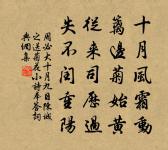 十月風霜動
籬邊菊始黃
從來司歷過
失不閏重陽
周必大十月九日陳誠
之送菊花小詩奉答詞
典網集